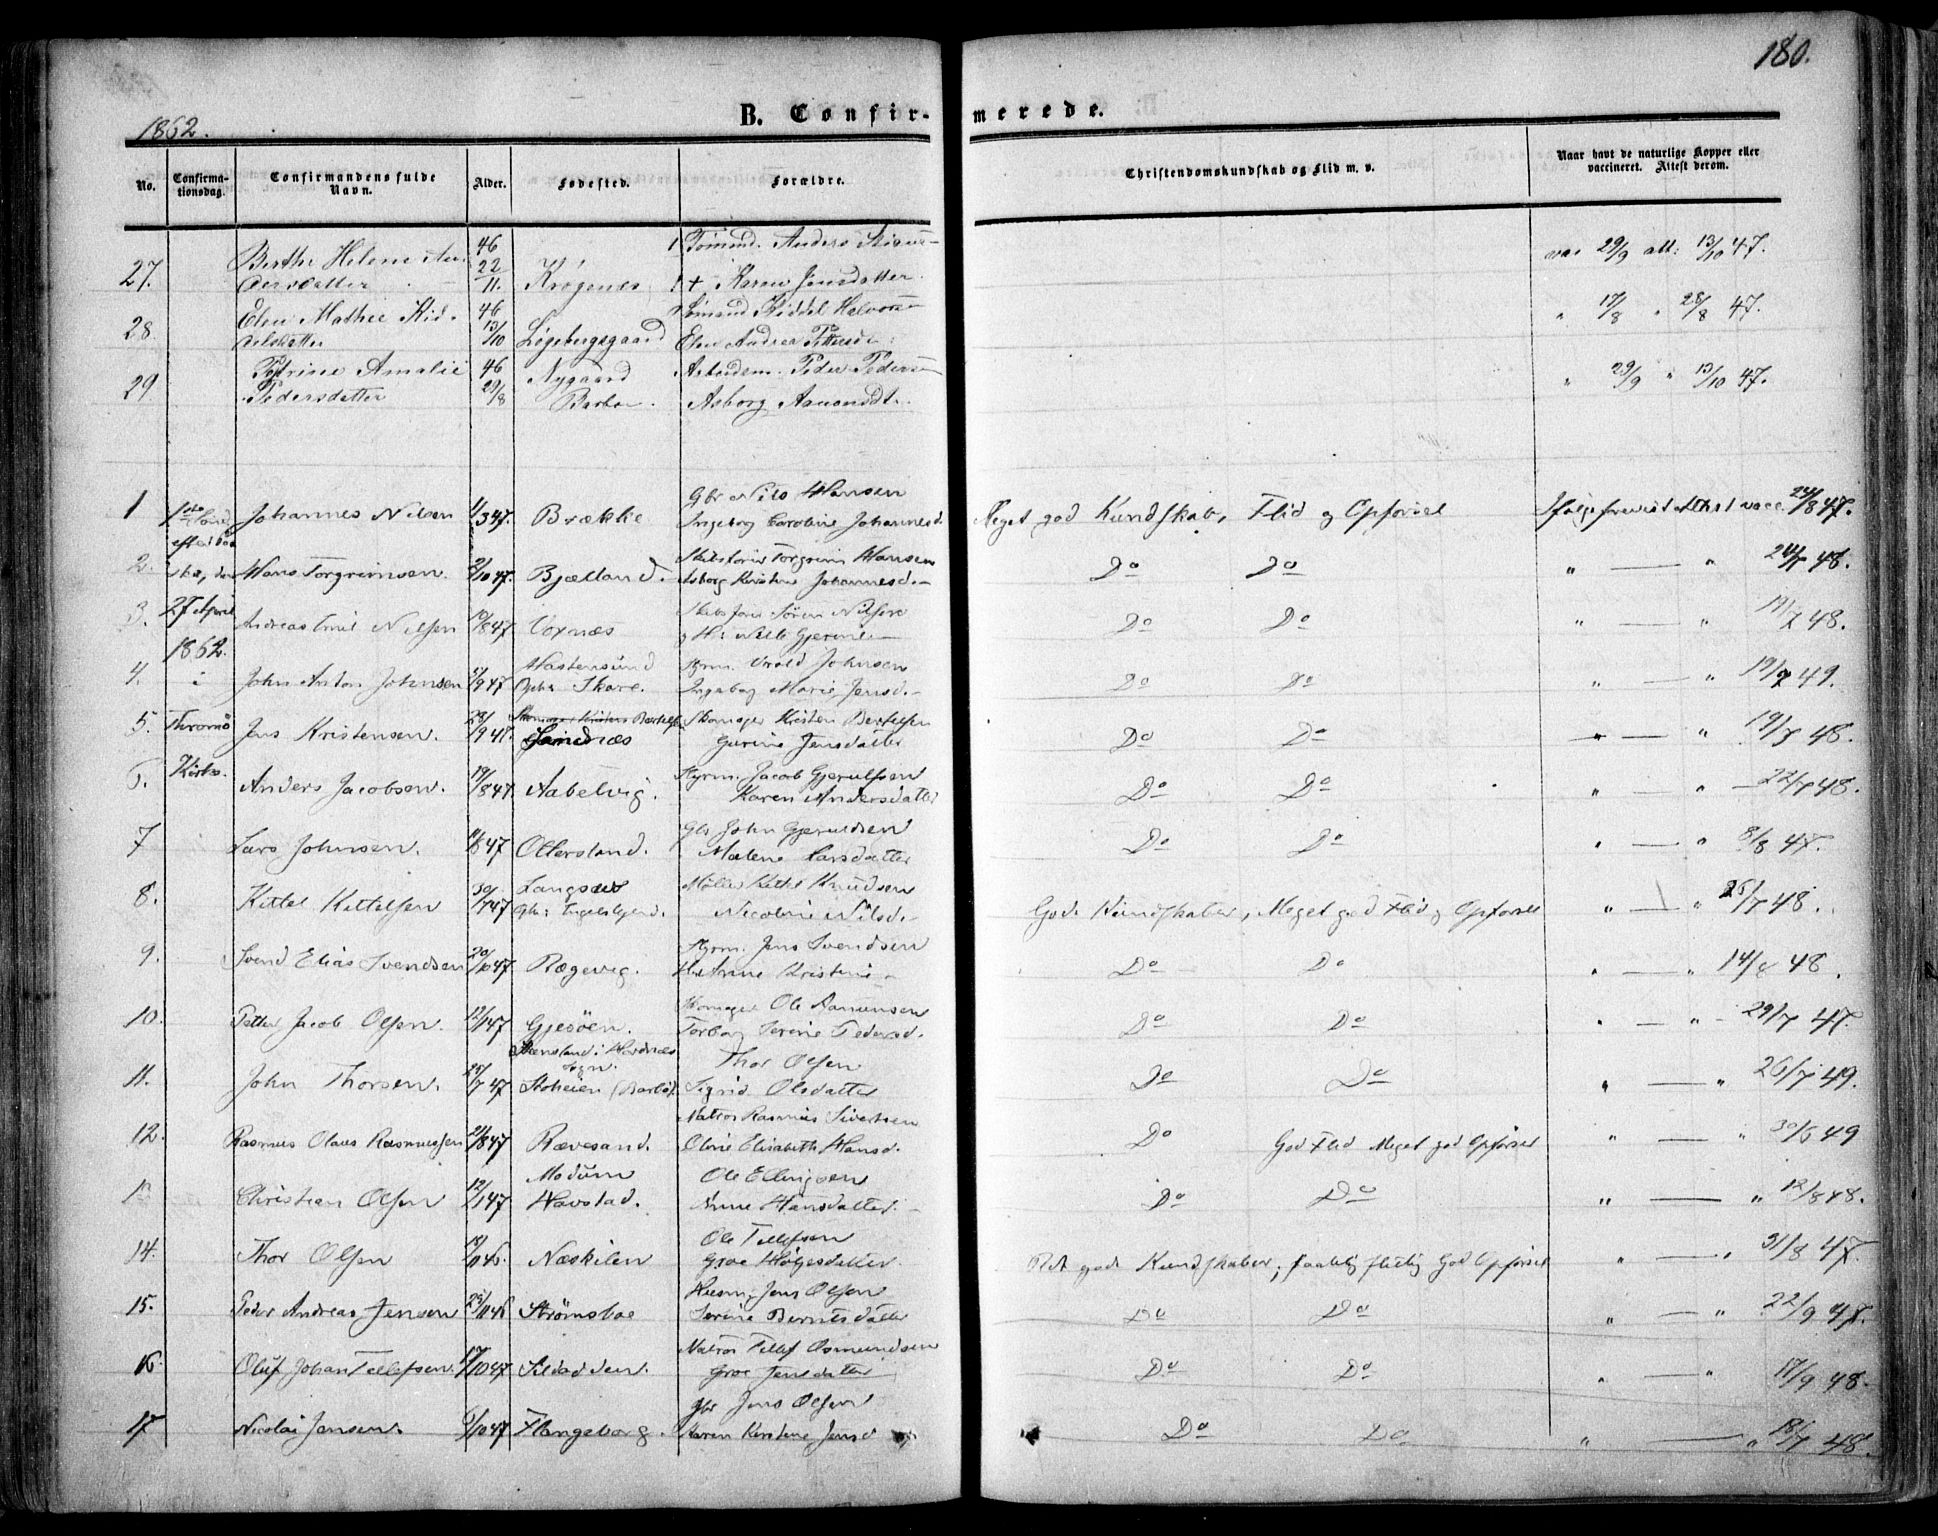 180.
1862.
B. Confirmerede.
No.
Confirmationsdag.
Confirmandens fulde Navn.
Alder.
Fødested.
Forældre.
Christendomskundskab og Flid m. v.
Naar havt de naturlige Kopper eller vaccineret. Attest derom.
27. Berthe Helene Andersdatter 46 22/11. Krøgenes Tømmd. Anders + Karen Jensdatter vac 29/9 att: 13/10 47.
28 Elen Mathie Kiddelsdatter 46 13/10 Løgebergsgaard Sømand Kiddel Halvors Elen Andrea " 17/8 " 28/8 47.
29 Petrine Amalie Pedersdatter 46 29/8 Nygaard Barbo. Arbeidsm. Peder Peders Asborg Aanondsdt. " 29/9 " 13/10 47.
1ste Sønd. efter Paaske, den 27 April 1862. i Thromø Kirke.
1 Johannes Nilsen 1/3 47. Brække Gbr Nils Hansen Ingeborg Caroline Johannesd. Meget god Kundskab, Flid og Opførsel Ifølge forevist Attest vacc. 24/8 47.
2. Hans Torgrimsen. 2/10 47. Bjelland. Skibstømr Torgrim Hansen Asborg Kirstine Johannesd. Do Do " — " 24/7 48.
3. Andreas Emil Nilsen 10/8 47 Voxnæs Søren Nilsen og H: Gjerine Do Do " — " 19/7 48.
4. John Anton Johnsen 5/9 47 Hastensund Skare. Styrm. John Johnsen Ingeborg Marie Jensd. Do Do " — " 19/7 49.
5. Jens Kristensen. 28/9 47. Sandnæs Skomager Kristen Bertelsen Gurine Jensdatter Do Do " — " 19/7 48.
6. Anders Jacobsen. 19/8 47 Aabelvig. Styrm. Jacob Gjerulfsen Karen Andersdatter Do Do " " — 22/7 48.
7 Lars Johnsen. 47 Otterstand. Gbr John Gjeruldsen Malene Larsdatter Do Do " — " 8/8 47.
8. Kittel Kittelsen 30/7 47 Langsæv Møller Kittel Knudsen Nicoline Nilsd. Gode Kundskaber, Meget god Flid og Opførsel " — " 25/7 48.
9. Svend Elias Svendsen 20/10 47 Rægevig. Styrm. Jens Svendsen Anne Kristine Do Do " — " 14/8 48.
10. Petter Jacob Olsen. 12/1 47 Gjesøen. Skomager Ole Aanunsen Torborg Serine Pedersd. Do Do " — " 29/7 47.
11. John Thorsen. 25/7 47 Stensland i Hordnæs Sogn. Stoheien (Barbo). Thor Olsen Sigrid Olsdatter Do Do " — " 26/7 49.
12. Rasmus Olaus Rasmussen 21/8 47 Rævesand. Matros Rasmus Sivertsen Oline Elisabeth Hansd. Do God Flid Meget god Opførsel " — " 30/6 49
13 Christian Olsen 12/1 47 Modum Havstad. Ole Ellingsen Anne Hansdatter. Do Do " — " 12/8 48.
14. Thor Olsen 18/10 46. Næskilen Ole Tellefsen Groe Helgesdatter. Ret gode Kundskaber, taalelig flittig God Opførsel " — " 31/8 47.
15. Peder Andreas Jensen 25/11 46 Strømsboe Jens Olsen Serine Berntsdatter Do Do " — " 22/9 47.
16. Oluf Johan Tellefsen. 17/10 47 Sildodden. Matros Tellef Osmundsen Groe Jensdatter Do Do " — " 17/9 48.
17 Nicolai Jensen. 6/10 47 Flangeborg. Gbr Jens Olsen Karen Kirstine Jensd Do Do " — " 18/7 48.